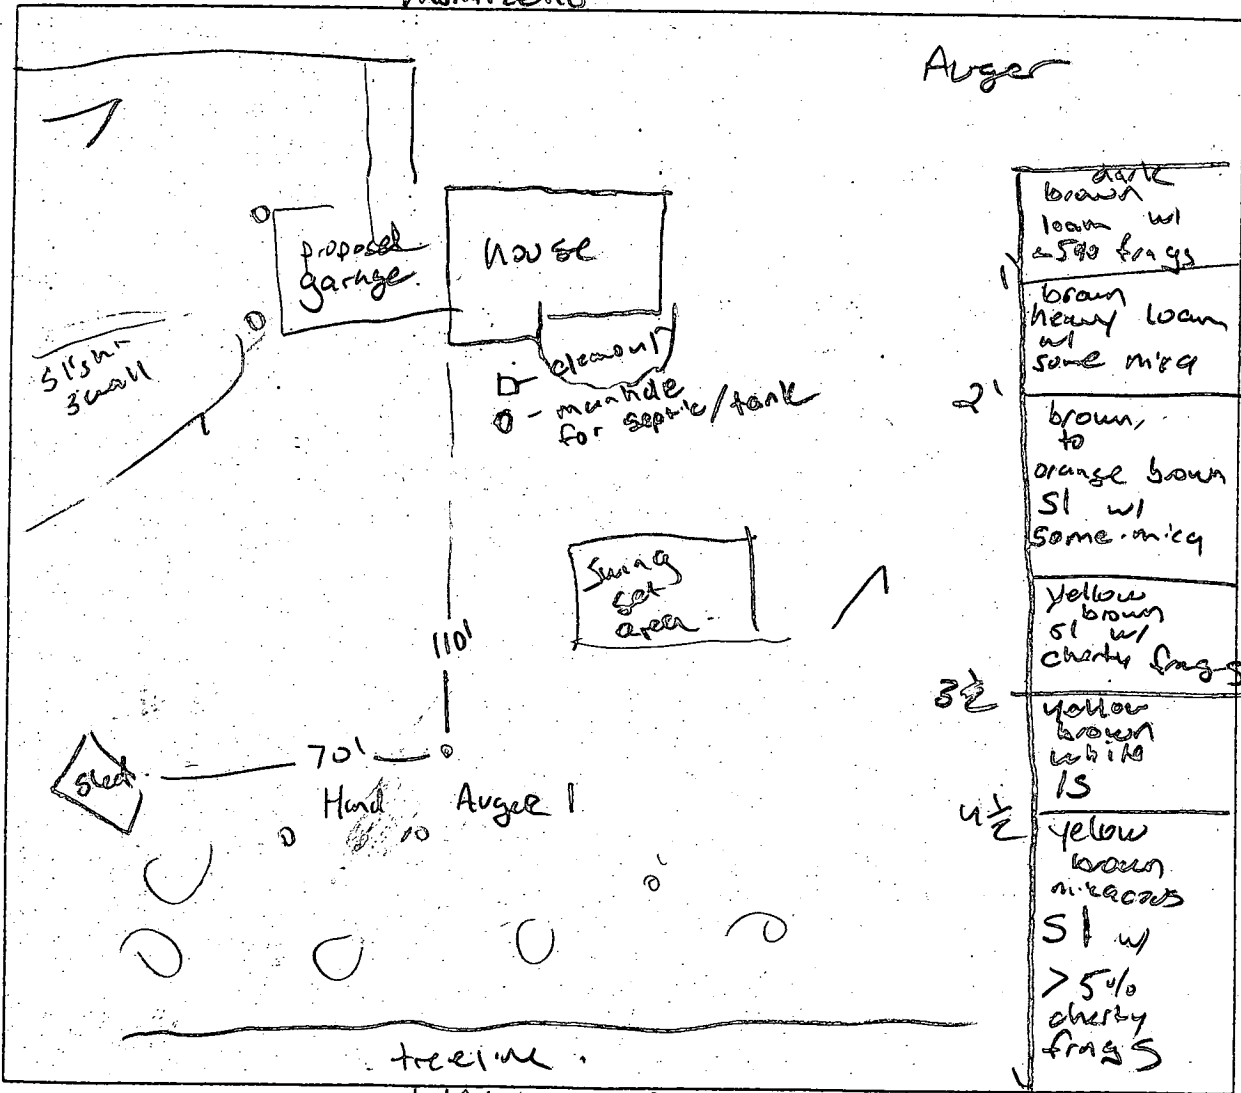 Auger
proposed
garage
house
slight
swall
cleanout
manhole
for septic/tank
Swing
set
area
110'
70'
shed
Hand Auger 1
treeline
dark
brown
loam w/
<5% frags
1'
brown
heavy loam
w/
some mica
2'
brown,
to
orange brown
Sl w/
some mica
yellow
brown
sl w/
cherty frags
3 1/2
yellow
brown
white
lS
4 1/2
yelow
brown
micaceous
Sl w/
> 5%
cherty
frags